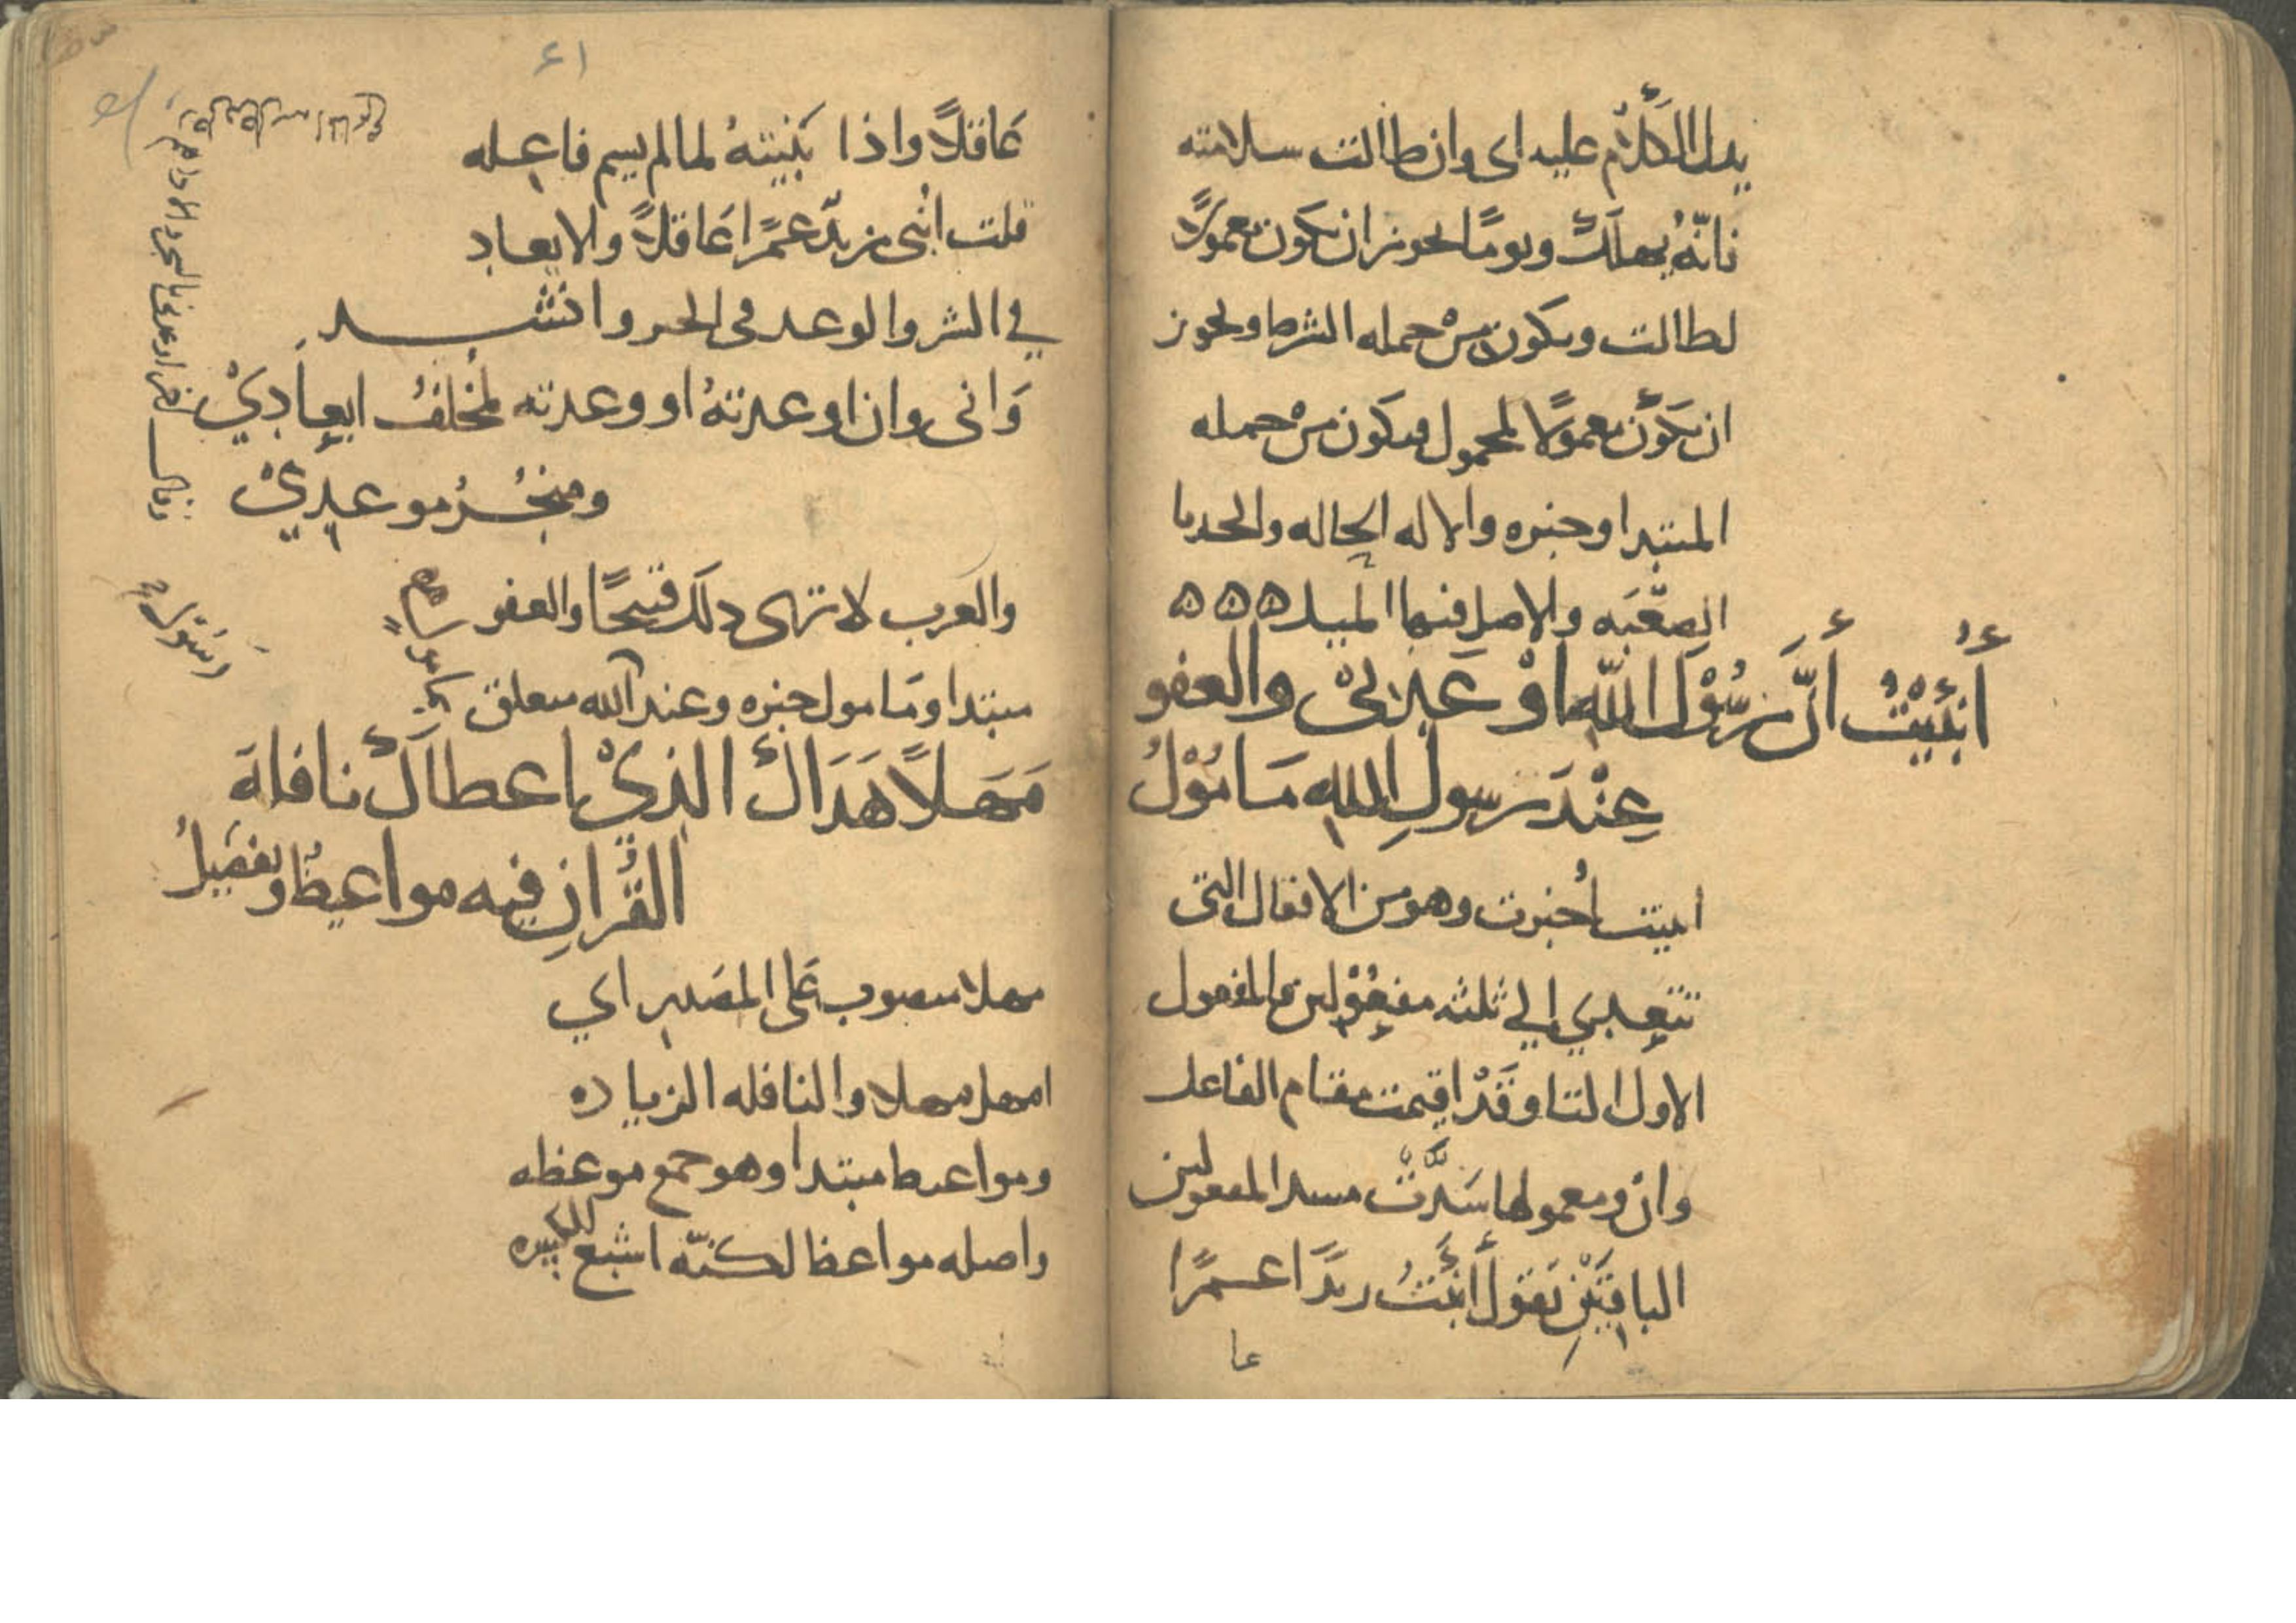 يدل الكلام عليه اى وان طالت سلامته
فانّهُ يهلك ويومًا يجوز ان يكون معمولًا
لطالت ويكون من جمله الشرط ويجوز
ان يكون معمولًا لمحمول فيكون من جمله
المبتدا وخبره والاله الحاله والحدبا
الصعبَه والاصل فيها الميل ٥ ٥ ٥
أُنْبِيْتُ أَنَّ رَسُوْلَ اللّهِ اوْعَدَنِىْ والعفو
عِنْدَ رَسولِ اللهِ مَامُوْلُ
انبيت اُخبرت وهو من الافعال التى
تتعدي الي ثلثه مفعُوْلين فالمفعول
الاول التا وقَدْ اقيمت مقام الفاعل
وان ومعمولها سَدَّتْ مسد المفعولين
الباقيَيْنِ تقول أنبئتُ زيدًا عمرًا
عا
٤١
عَاقلًا واذا بَنَيتهُ لما لم يسم فاعله
قلت اُنبى زيدٌ عمرًا عَاقلًا والايعاد
في الشر والوعد فى الخير وانشد
وَانى وان اوعدتهُ او وعدته لمُخلفُ ايعَادِيْ
ومنجزُ موعدِيْ
والعرب لا ترى ذلك قبيحًا والعفو
مبتدا ومَامول خبره وعند الله متعلق
مَهَلًا هَدَاكَ الذِيْ اعطاكَ نافلةَ
القُرانِ فيه مواعيظُ وتفصيلُ
مهلا منصوب عَلى المصَدر اي
امهل مهلا والنافله الزياده
ومواعيظ مبتدا وهو جمع موعظه
واصله مواعظ لكنّه اشبع الكسره